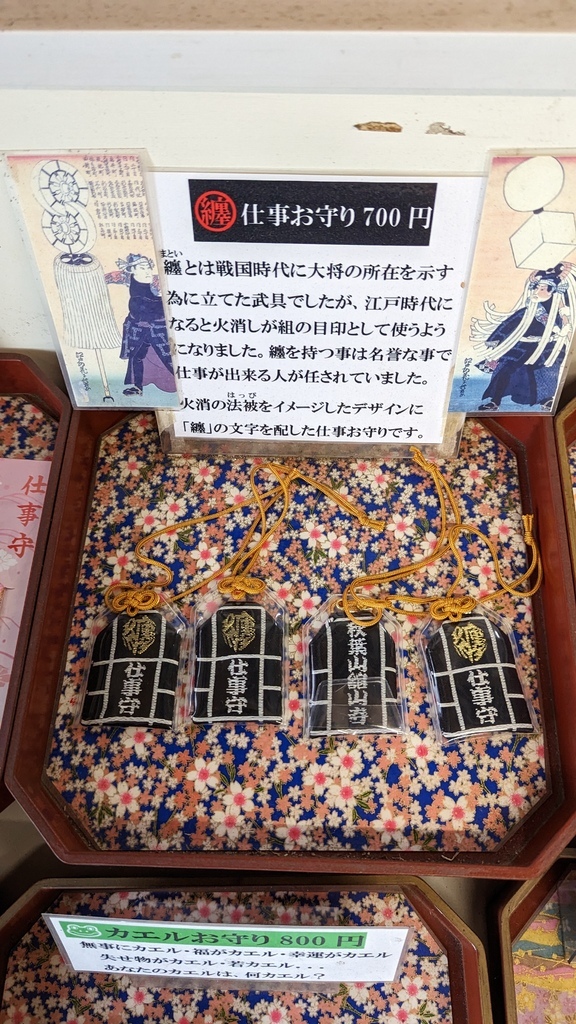 纏 仕事お守り 700 円
まとい
纏とは戦国時代に大将の所在を示す
為に立てた武具でしたが、江戸時代に
なると火消しが組の目印として使うよう
になりました。纏を持つ事は名誉な事で
仕事が出来る人が任されていました。
はっぴ
火消の法被をイメージしたデザインに
「纏」の文字を配した仕事お守りです。
仕事守
纏
仕事守
纏
仕事守
秋葉山舘山寺
纏
仕事守
カエルお守り 800 円
無事にカエル・福がカエル・幸運がカエル
失せ物がカエル・若カエル・・・
あなたのカエルは、何カエル？